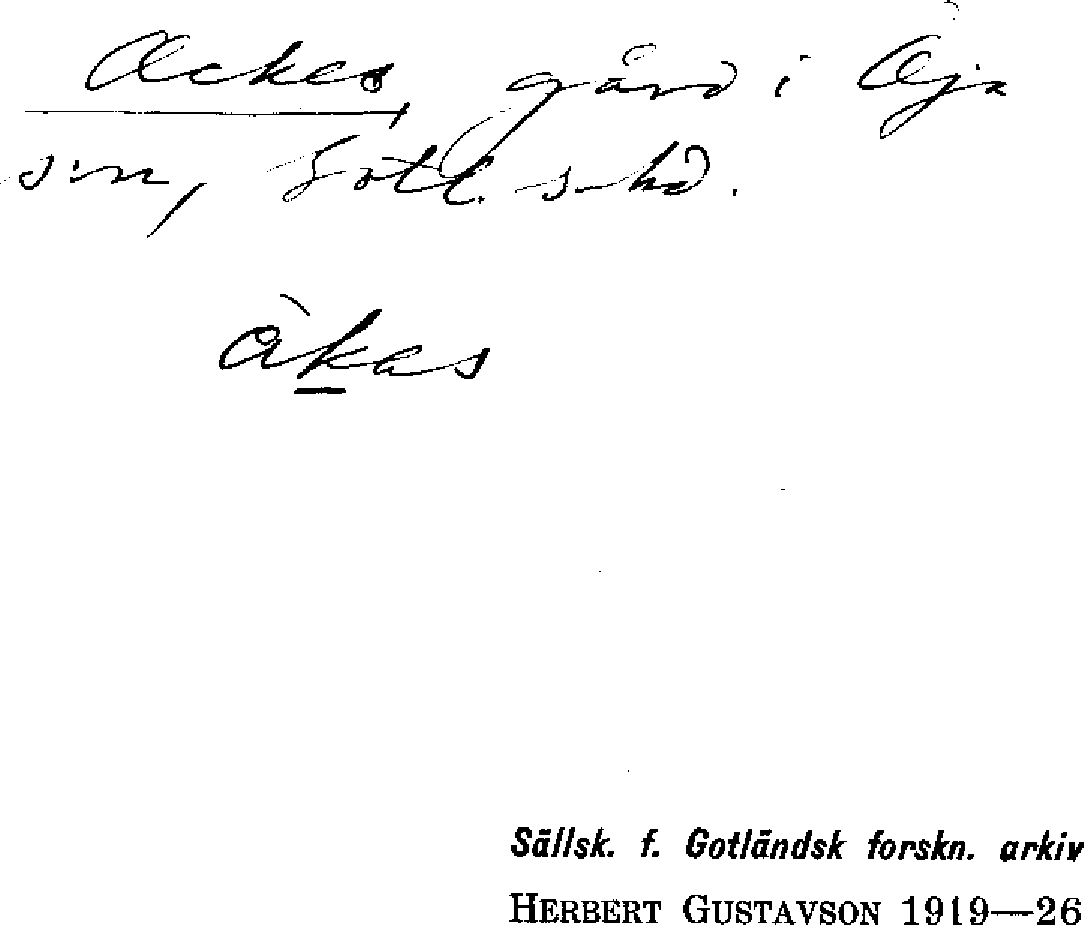 Ackes, gård i Öja
s:n, Gotl. s. hd.
àkas
Sällsk. f. Gotländsk forskn. arkiv
HERBERT GUSTAVSON 1919—26